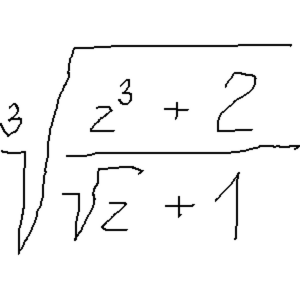 \sqrt[3]{\frac{z^3 + 2}{\sqrt{z} + 1}}